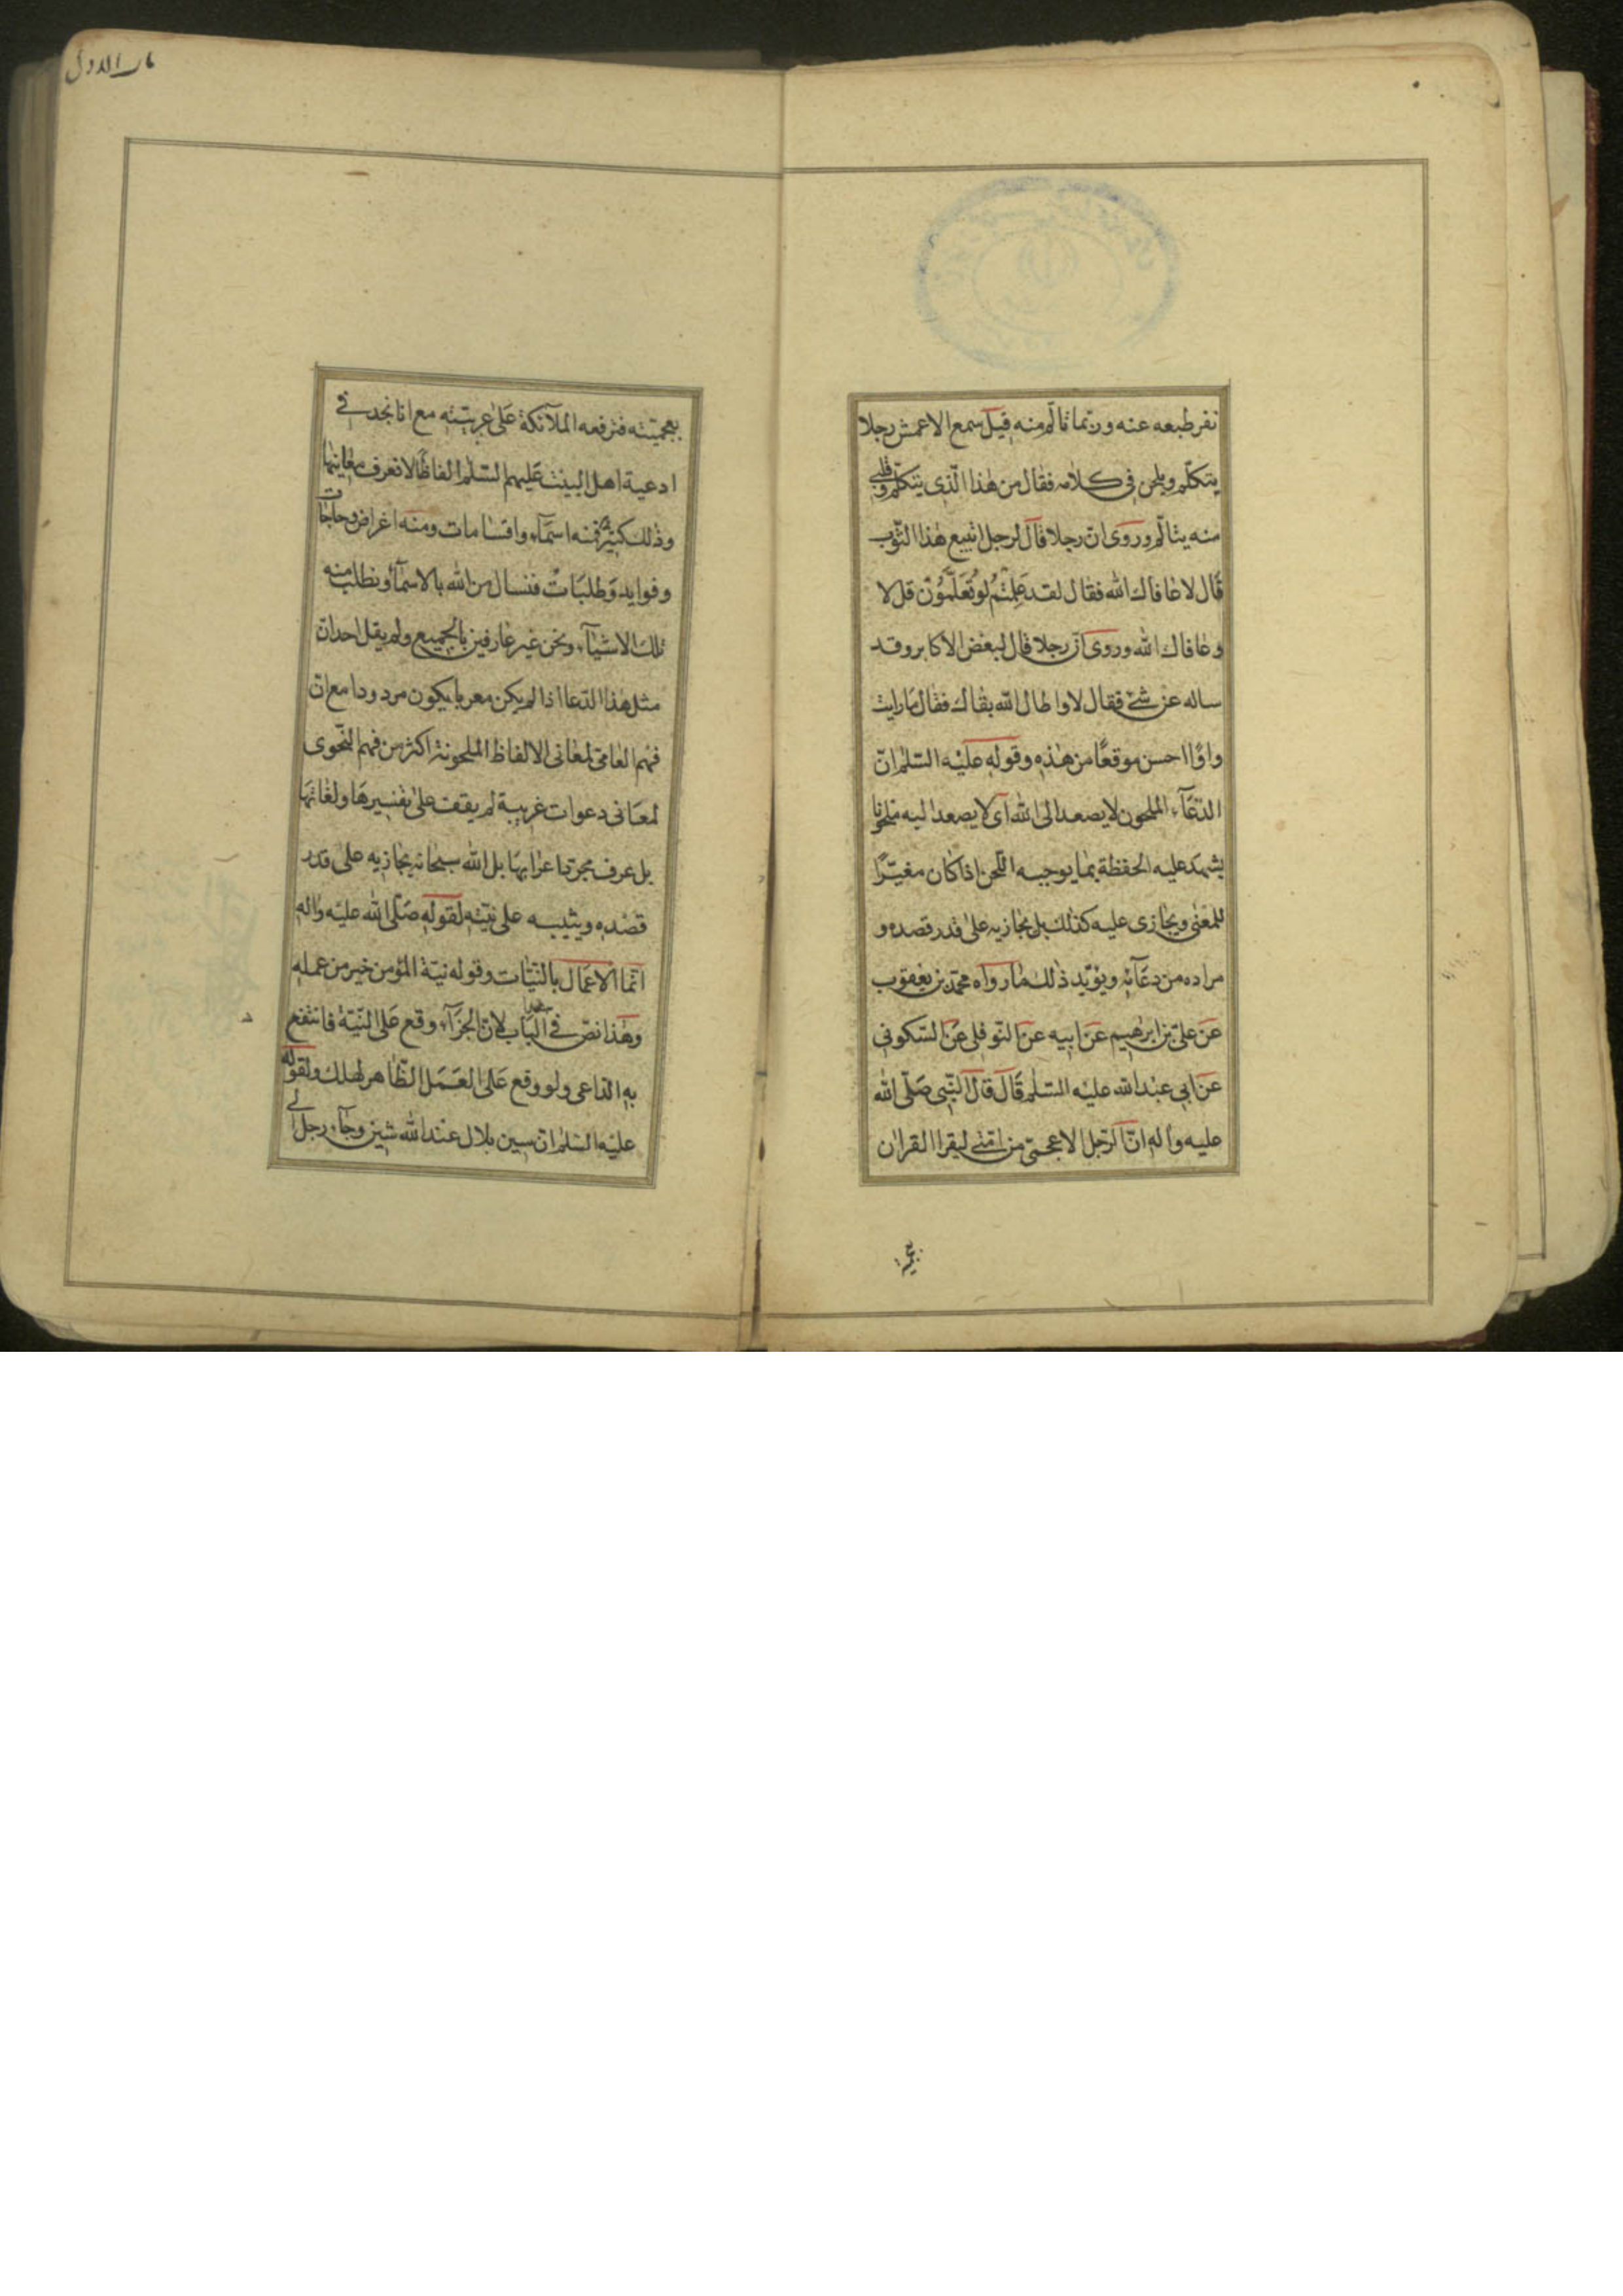 نفر طبعه عنه وربما تألم منه قيل سمع الاعمش رجلا
يتكلم ويلحن فى كلامه فقال من هذا الذى يتكلم وقلبى
منه يتألم وروى ان رجلا قال لرجل اتبيع هذا الثوب
قال لا عافاك الله فقال لقد علمتم لو تعلمون قل لا
وعافاك الله وروى ان رجلا قال لبعض الاكابر وقد
ساله عن شئ فقال لا واطال الله بقاك فقال ما رايت
واوًا احسن موقعًا من هذه وقوله عليه السلم ان
الدعآء الملحون لا يصعد الى الله اى لا يصعد اليه ملحونا
يشهد عليه الحفظة بما يوجبه اللحن اذا كان مغيّرًا
للمعنى ويجازى عليه كذلك بل يجازيه على قدر قصده و
مراده من دعآئه ويؤيد ذلك ما رواه محمد بن يعقوب
عن على بن ابرهيم عن ابيه عن النوفلى عن السكونى
عن ابى عبد الله عليه السلم قال قال النبى صلى الله
عليه وآله ان الرجل الاعجمى من امتى ليقرا القران
بعجميته فترفعه الملآئكة على عربيته مع انا نجد فى
ادعية اهل البيت عليهم السلم الفاظًا لا نعرف معانيها
وذلك كثير فمنه اسمآء واقسامات ومنه اغراض وحاجات
وفوايد وطلبات فنسال من الله بالاسمآء ونطلب منه
تلك الاشيآء ونحن غير عارفين بالجميع ولم يقل احد ان
مثل هذا الدعا اذا لم يكن معربا يكون مردودا مع ان
فهم العامى لمعانى الالفاظ الملحونة اكثر من فهم النحوى
لمعانى دعوات غريبة لم يقف على تفسيرها ولغاتها
بل عرف مجرد اعرابها بل الله سبحانه يجازيه على قدر
قصده ويثيبه على نيته لقوله صلى الله عليه واله
انما الاعمال بالنيات وقوله نية المؤمن خير من عمله
وهذا نص فى الباب لان الجزآء وقع على النية فانتفع
به الداعى ولو وقع على العمل الظاهر لهلك ولقوله
عليه السلم ان سين بلال عند الله شين وجآء رجل الى